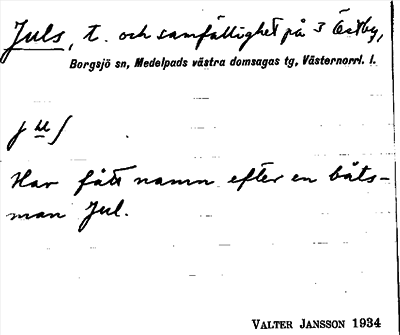 Juls, t. och samfällighet på 3 Östby,
Borgsjö sn, Medelpads västra domsagas tg, Västernorrl. l.
j u s
Har fått namn efter en båts-
man Jul.
VALTER JANSSON 1934